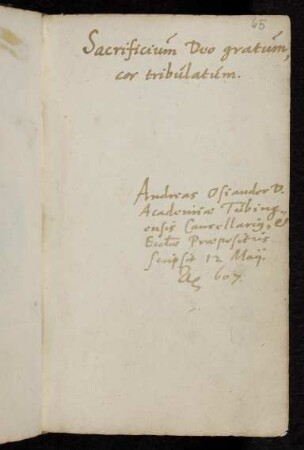 65
Sacrificium Deo gratum,
cor tribulatum.
Andreas Osiander D.
Academiæ Tubing,,
ensis Cancellariꝰ, &
Præpositus
scripsit 12 Maij.
Aᵒ 607.